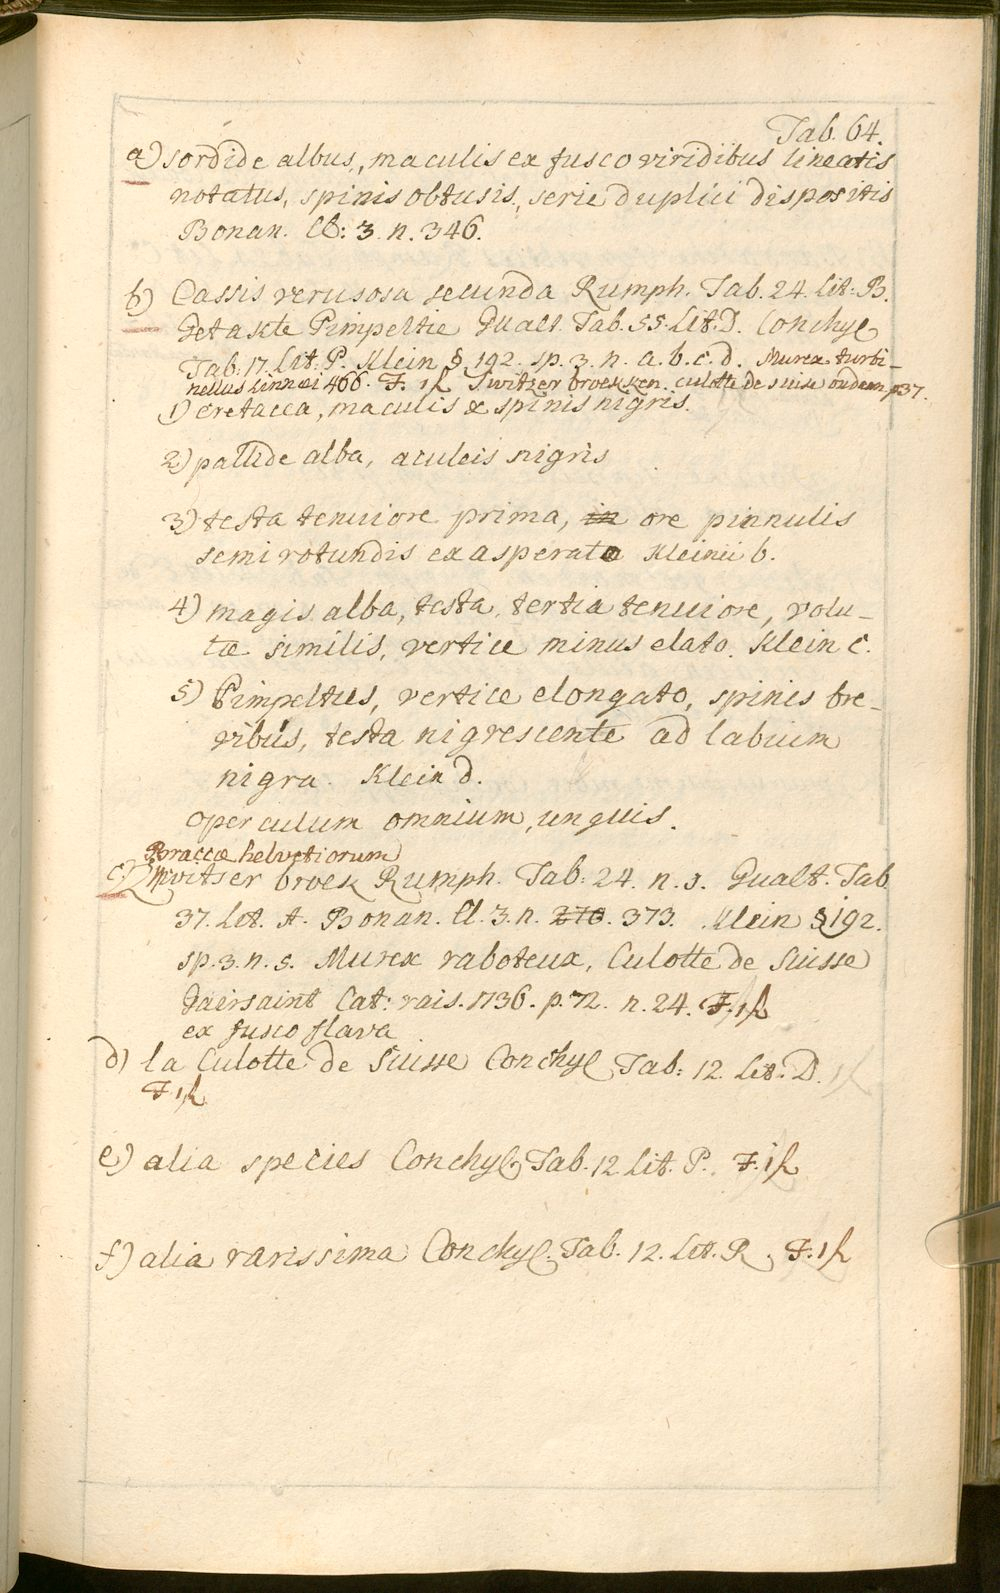 Tab. 64.
a) sordide albus, maculis ex fusco viridibus lineatis
notatus, spinis obtusis, serie duplici dispositis
Bonan. Cl: 3. n. 346.
b) Cassis verusosa secunda Rumph. Tab. 24. Lit: B.
Getakte Pimpeltie Gualt. Tab. 55. Lit: D. Conchyl
Tab: 17. Lit. P. Klein § 192. sp. 3. n. a. b. c. d. Murex turbi-
nellus Linnæi 466. F. 1 Switzer broekken. culotte de suise oudaan p37.
1) cretacea, maculis & spinis nigris.
2) pallide alba, aculeis nigris
3) testa tenuiore prima, in ore pinnulis
semirotundis exasperato Kleinii b.
4) magis alba, testa, tertia tenuiore, volu-
tæ similis, vertice minus elato. Klein c.
5) Pimpelties, vertice elongato, spinis bre-
vibus, testa nigrescente ad labium
nigra. Klein d.
operculum omnium, unguis.
Braccæ helvetiorum
c) Switser broek Rumph. Tab: 24. n. 3. Gualt. Tab
37. Lit. A. Bonan. Cl. 3. n. 270. 373. Klein § 192.
sp. 3. n. 5. Murex raboteux, Culotte de Suisse
Gairsaint Cat: rais. 1736. p. 72. n. 24. F. 1
ex fusco flava
d) la Culotte de Suisse Conchyl Tab: 12. Lit. D.
F 1
e) alia species Conchyl. Tab. 12 Lit. P. F. 1
f) alia rarissima Conchyl. Tab. 12. Lit. R. F. 1